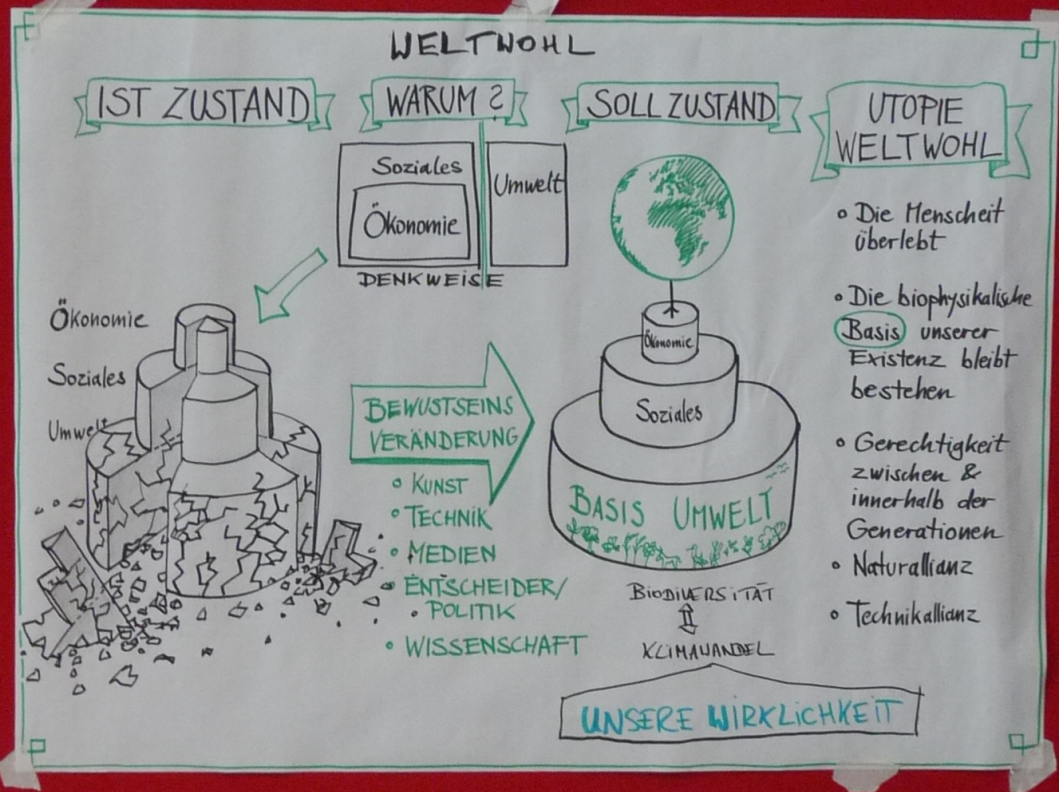 WELTWOHL
IST ZUSTAND
WARUM?
SOLL ZUSTAND
UTOPIE
WELTWOHL
Soziales
Ökonomie
Umwelt
DENKWEISE
Ökonomie
Soziales
Umwelt
BEWUSTSEINS
VERÄNDERUNG
• KUNST
• TECHNIK
• MEDIEN
• ENTSCHEIDER/
• POLITIK
• WISSENSCHAFT
Ökonomie
Soziales
BASIS UMWELT
BIODIVERSITÄT
KLIMAWANDEL
UNSERE WIRKLICHKEIT
• Die Menscheit
überlebt
• Die biophysikalische
Basis unserer
Existenz bleibt
bestehen
• Gerechtigkeit
zwischen &
innerhalb der
Generationen
• Naturallianz
• Technikallianz